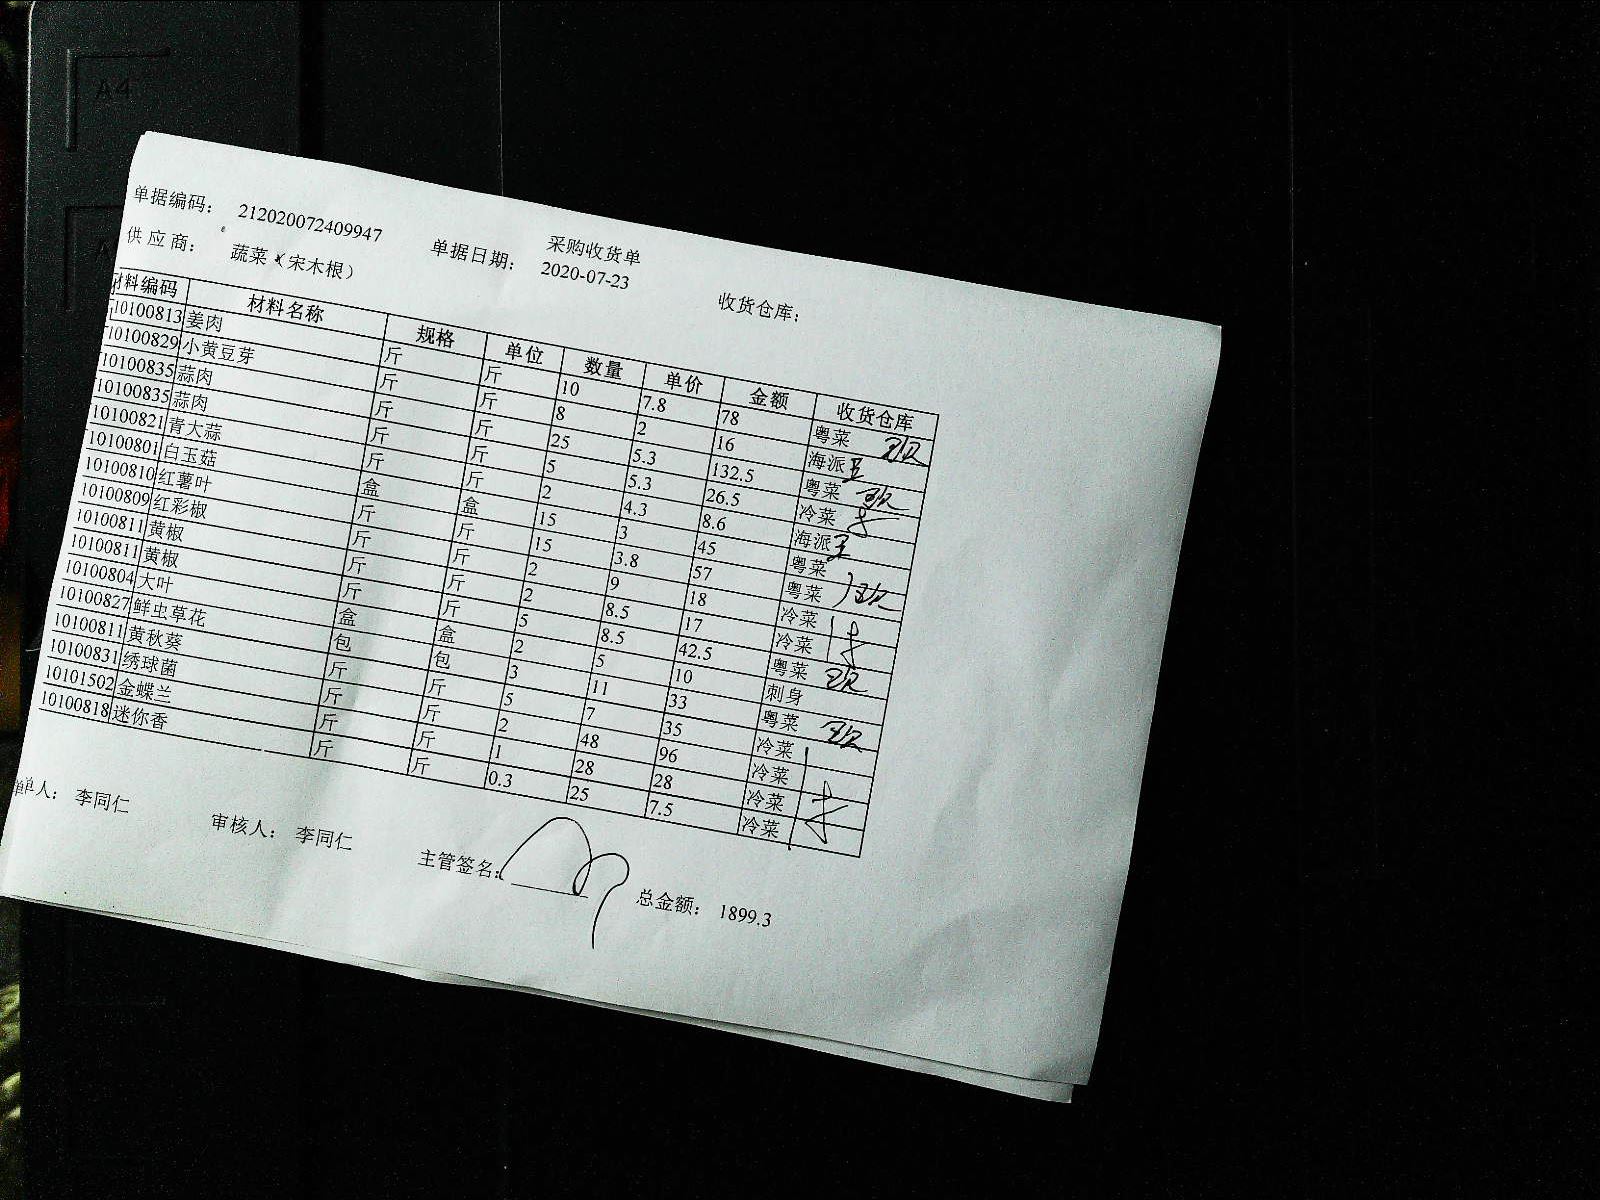 采购收货单
单据编码： 212020072409947 单据日期： 2020-07-23 收货仓库：
供应商： 蔬菜（宋木根）
材料编码 材料名称 规格 单位 数量 单价 金额 收货仓库
10100813 姜肉 斤 斤 10 7.8 78 粤菜
10100829 小黄豆芽 斤 斤 8 2 16 海派
10100835 蒜肉 斤 斤 25 5.3 132.5 粤菜
10100835 蒜肉 斤 斤 5 5.3 26.5 冷菜
10100821 青大蒜 斤 斤 2 4.3 8.6 海派
10100801 白玉菇 盒 盒 15 3 45 粤菜
10100810 红薯叶 斤 斤 15 3.8 57 粤菜
10100809 红彩椒 斤 斤 2 9 18 冷菜
10100811 黄椒 斤 斤 2 8.5 17 冷菜
10100811 黄椒 斤 斤 5 8.5 42.5 粤菜
10100804 大叶 盒 盒 2 5 10 刺身
10100827 鲜虫草花 包 包 3 11 33 粤菜
10100811 黄秋葵 斤 斤 5 7 35 冷菜
10100831 绣球菌 斤 斤 2 48 96 冷菜
10101502 金蝶兰 斤 斤 1 28 28 冷菜
10100818 迷你香 斤 斤 0.3 25 7.5 冷菜
单人： 李同仁 审核人： 李同仁 主管签名： 总金额： 1899.3